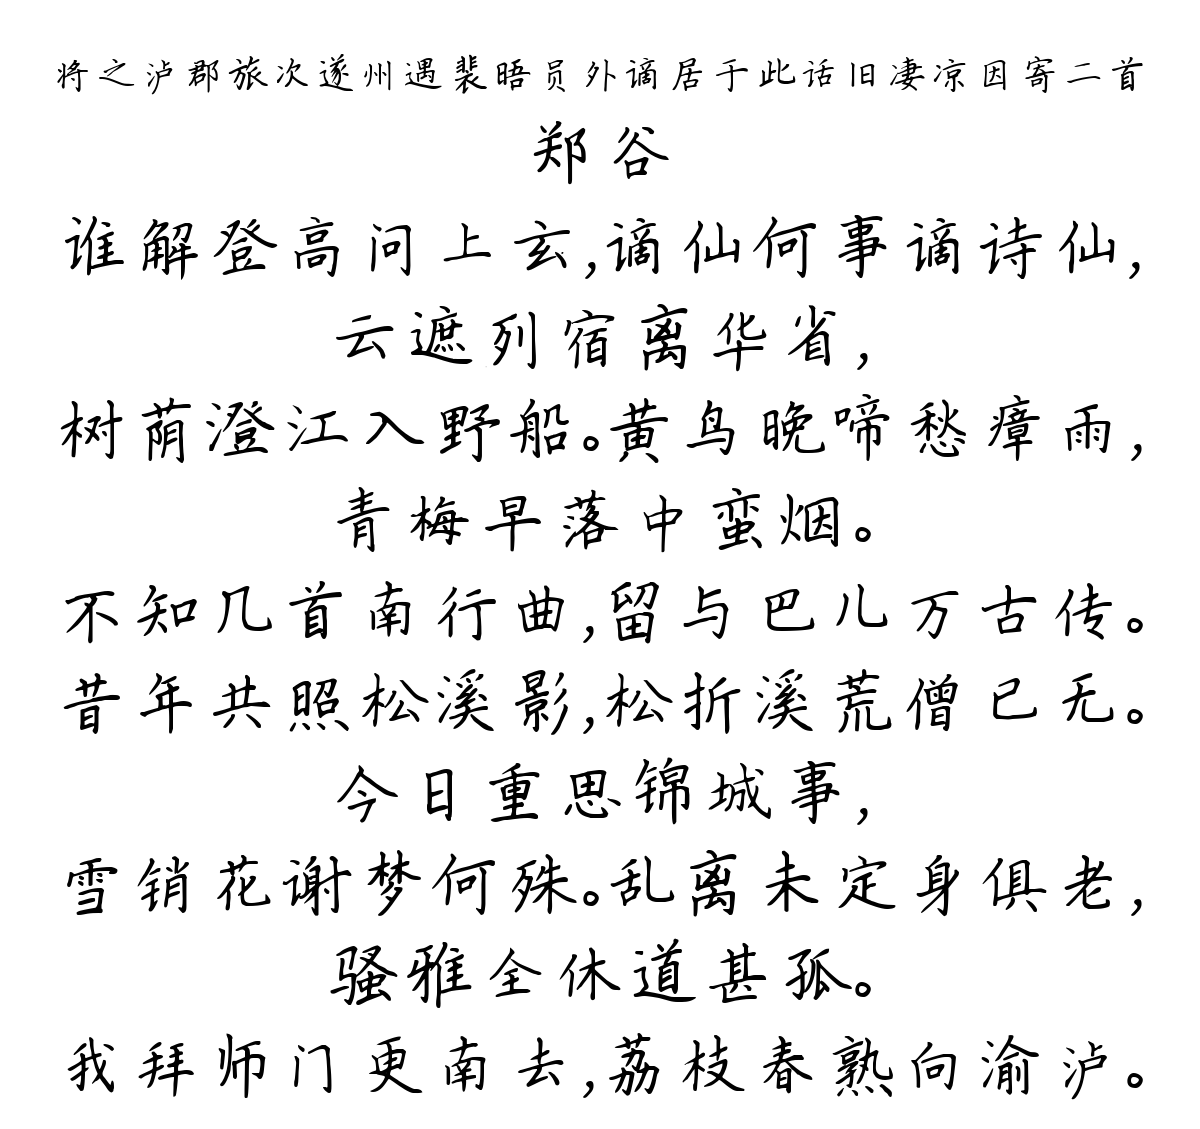 将之泸郡旅次遂州遇裴晤员外谪居于此话旧凄凉因寄二首
郑谷
谁解登高问上玄,谪仙何事谪诗仙,
云遮列宿离华省,
树荫澄江入野船。黄鸟晚啼愁瘴雨,
青梅早落中蛮烟。
不知几首南行曲,留与巴儿万古传。
昔年共照松溪影,松折溪荒僧已无。
今日重思锦城事,
雪销花谢梦何殊。乱离未定身俱老,
骚雅全休道甚孤。
我拜师门更南去,荔枝春熟向渝泸。